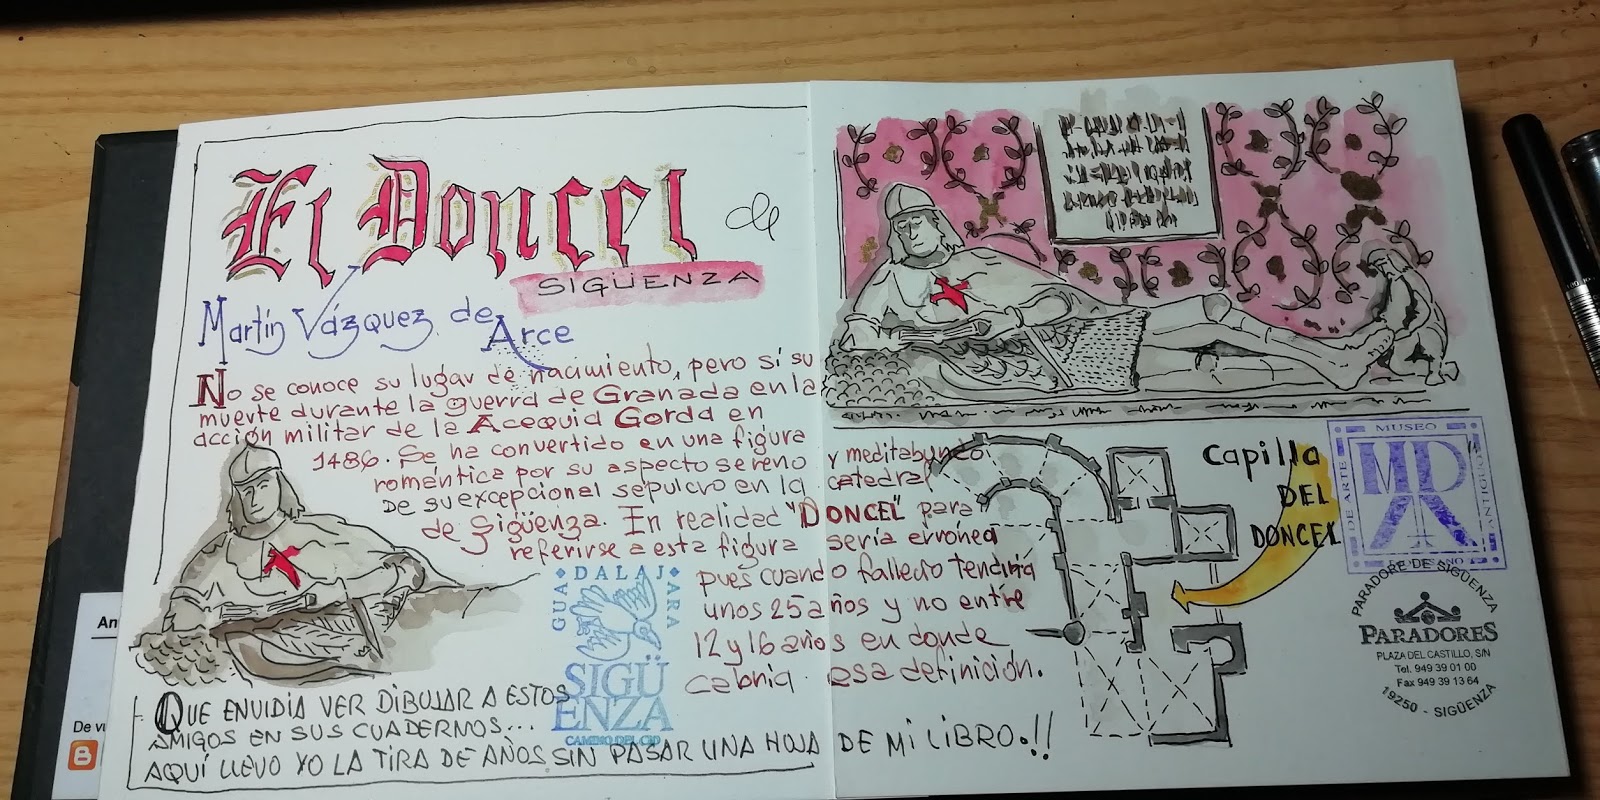 El Doncel de
SIGÜENZA
Martín Vázquez de
Arce
No se conoce su lugar de nacimiento, pero sí su
muerte durante la guerra de Granada en la
acción militar de la Acequia Gorda en
1486. Se ha convertido en una figura
romántica por su aspecto sereno y meditabundo
de su excepcional sepulcro en la catedral
de Sigüenza. En realidad "DONCEL" para
referirse a esta figura sería errónea
pues cuando fallecio tendría
unos 25 años y no entre
12 y 16 años en donde
cabría esa definición.
GUADALAJARA
SIGÜ
ENZA
CAMINO DEL CID
QUE ENVIDIA VER DIBUJAR A ESTOS
AMIGOS EN SUS CUADERNOS...
AQUÍ LLEVO YO LA TIRA DE AÑOS SIN PASAR UNA HOJA DE MI LIBRO.!!
Capilla
DEL
DONCEL
MUSEO
DE ARTE
ANTIGUO
PARADORE DE SIGÜENZA
PARADORES
PLAZA DEL CASTILLO, S/N
Tel. 949 39 01 00
Fax 949 39 13 64
19250 - SIGÜENZA
An
De vu